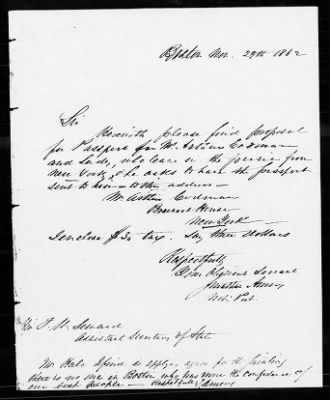 Boston Nov. 29th 1862
Sir
Herewith Please find proposal
for Passport for Mr. Arthur Codman
and Lady, who leave in the from
New York, he asks to have the passport
sent to him to this address
Mr. Arthur Codman
Brevoort House
New York
I enclose $3 tax. Say three dollars
Respectfully
Your Obedient Servant
Not. Pub.
Hon F. W. Seward
Assistant Secretary of State
Mr. applies again for the
there is no one in Boston who has more the confidence of
our best people — Respectfully